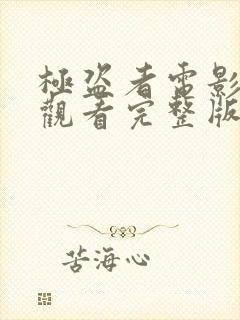 極盜者電影
觀看完整版
苦海心